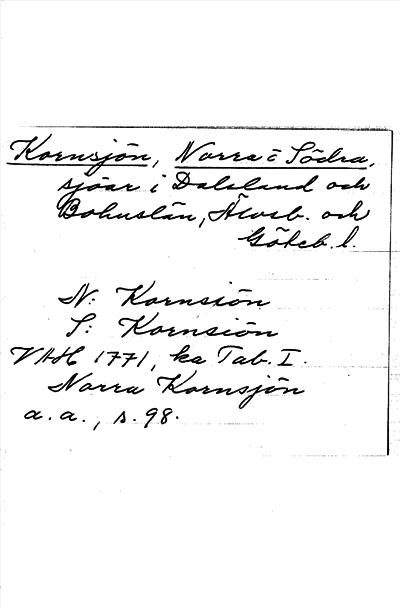 Kornsjön, Norra o Södra,
sjöar i Dalsland och
Bohuslän, Älvsb. och
Göteb. l.
N: Kornsiön
S: Kornsiön
VAH 1771, ka Tab. I.
Norra Kornsjön
a. a., s. 98.